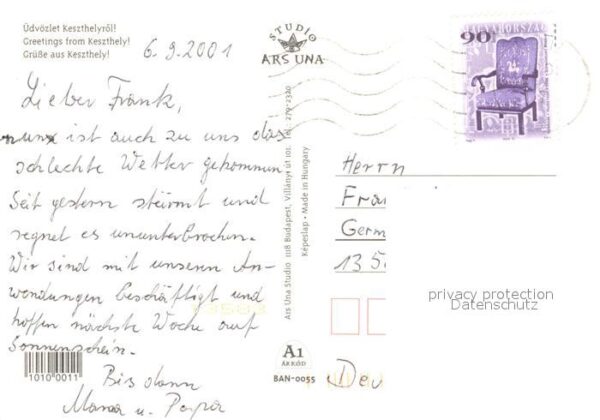 Üdvözlet Keszthelyről!
Greetings from Keszthely!
Grüße aus Keszthely!
6.9.2001
Lieber Frank,
nun ist auch zu uns das
schlechte Wetter gekommen.
Seit gestern stürmt und
regnet es ununterbrochen.
Wir sind mit unseren An-
wendungen beschäftigt und
hoffen nächste Woche auf
Sonnenschein.
Bis dann
Mama u. Papa
1010 0011
STUDIO
ARS UNA
Ars Una Studio 1118 Budapest, Villányi út 101.
Képeslap • Made in Hungary
90
MAGYARORSZÁG
Herrn
Fra
Germ
135
privacy protection
Datenschutz
A1
ÁRKÓD
BAN-0055
Deu